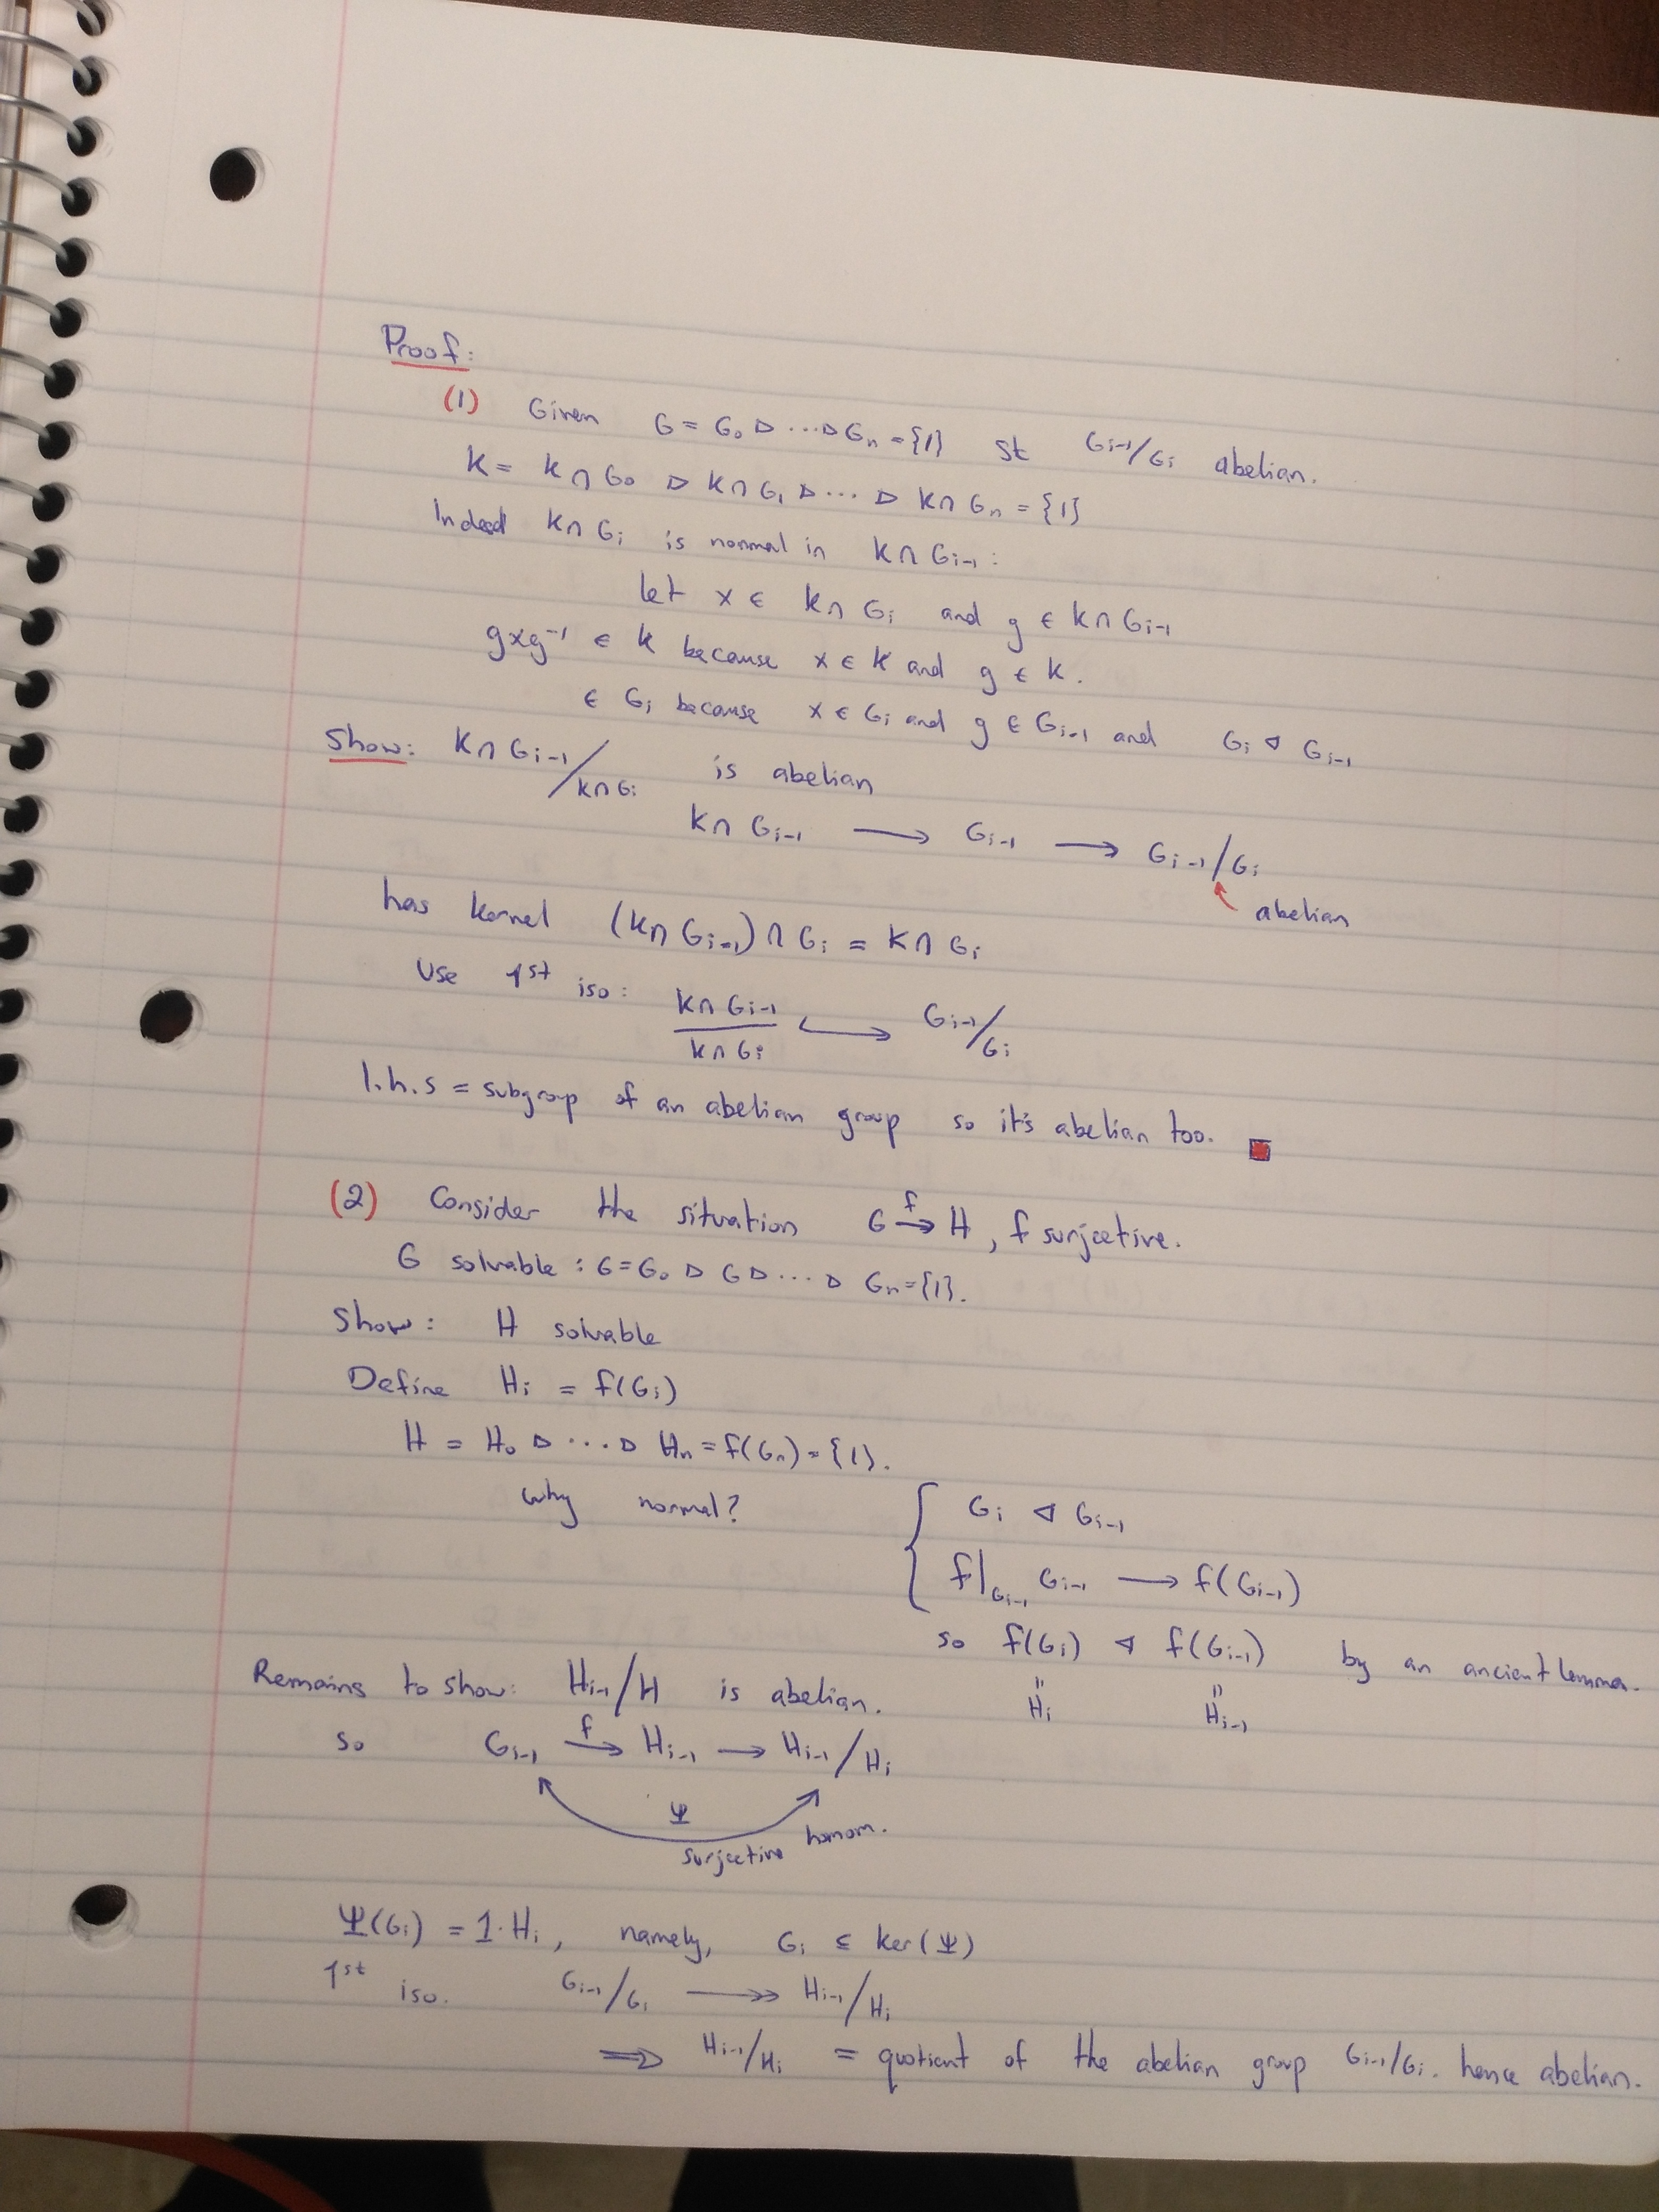 Proof:
(1) Given G = G₀ ▷ ... ▷ Gₙ = {1} st Gᵢ₋₁/Gᵢ abelian.
K = K ∩ G₀ ▷ K ∩ G₁ ▷ ... ▷ K ∩ Gₙ = {1}
Indeed K ∩ Gᵢ is normal in K ∩ Gᵢ₋₁ :
let x ∈ K ∩ Gᵢ and g ∈ K ∩ Gᵢ₋₁
gxg⁻¹ ∈ K because x ∈ K and g ∈ K.
∈ Gᵢ because x ∈ Gᵢ and g ∈ Gᵢ₋₁ and Gᵢ ◁ Gᵢ₋₁
Show: K ∩ Gᵢ₋₁ / K ∩ Gᵢ is abelian
K ∩ Gᵢ₋₁ ⟶ Gᵢ₋₁ ⟶ Gᵢ₋₁/Gᵢ
abelian
has kernel (K ∩ Gᵢ₋₁) ∩ Gᵢ = K ∩ Gᵢ
Use 1st iso: K ∩ Gᵢ₋₁ / K ∩ Gᵢ ↪ Gᵢ₋₁/Gᵢ
l.h.s = subgroup of an abelian group so it's abelian too. ■
(2) Consider the situation G →f H, f surjective.
G solvable : G = G₀ ▷ G ▷ ... ▷ Gₙ = {1}.
Show: H solvable
Define Hᵢ = f(Gᵢ)
H = H₀ ▷ ... ▷ Hₙ = f(Gₙ) = {1}.
why normal? { Gᵢ ◁ Gᵢ₋₁
f|Gᵢ₋₁ Gᵢ₋₁ ⟶ f(Gᵢ₋₁)
so f(Gᵢ) ◁ f(Gᵢ₋₁) by an ancient lemma.
" Hᵢ " Hᵢ₋₁
Remains to show: Hᵢ₋₁/H is abelian.
so Gᵢ₋₁ →f Hᵢ₋₁ ⟶ Hᵢ₋₁/Hᵢ
Ψ
surjective homom.
Ψ(Gᵢ) = 1·Hᵢ, namely, Gᵢ ⊆ ker(Ψ)
1st iso. Gᵢ₋₁/Gᵢ ↠ Hᵢ₋₁/Hᵢ
⟹ Hᵢ₋₁/Hᵢ = quotient of the abelian group Gᵢ₋₁/Gᵢ. hence abelian.